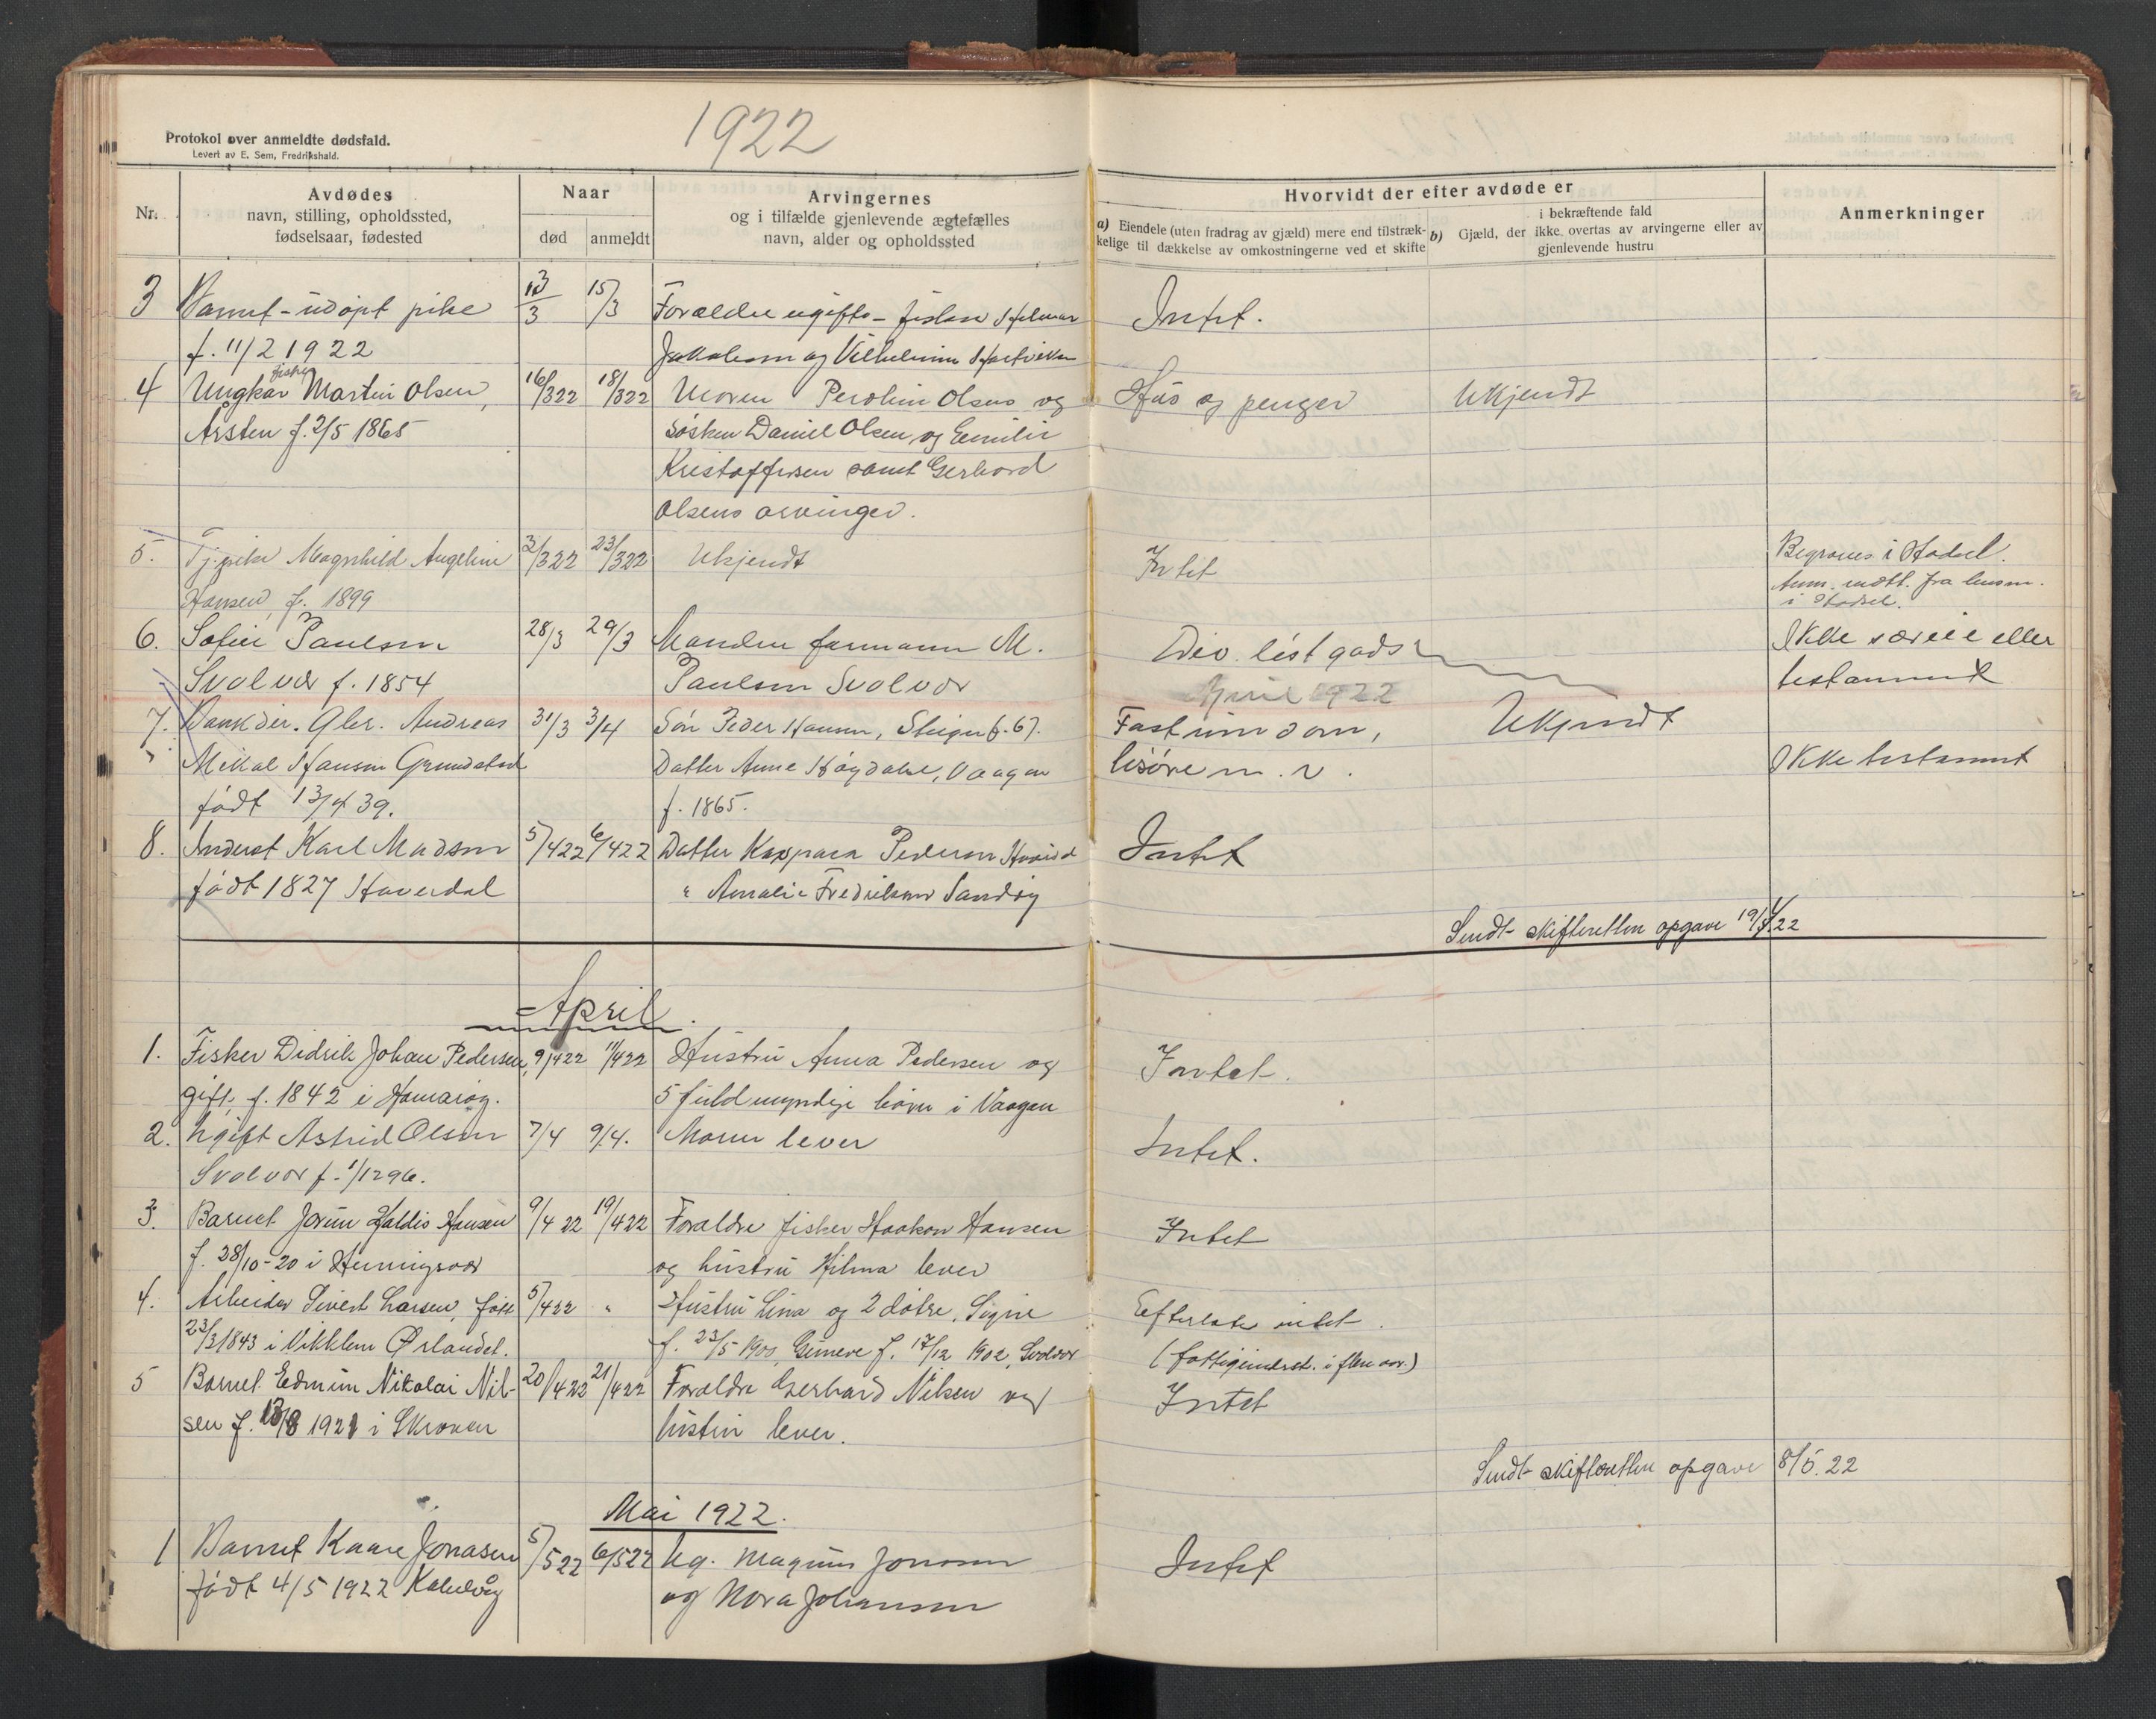 1922
Protokol over anmeldte dødsfald.
Levert av E. Sem, Fredrikshald.
Nr.
Avdødes
navn, stilling, opholdssted,
fødselsaar, fødested
Naar
død
anmeldt
Arvingernes
og i tilfælde gjenlevende ægtefælles
navn, alder og opholdssted
Hvorvidt der efter avdøde er
a) Eiendele (uten fradrag av gjæld) mere end tilstræk-
kelige til dækkelse av omkostningerne ved et skifte
i bekræftende fald
b) Gjæld, der ikke overtas av arvingerne eller av
gjenlevende hustru
Anmerkninger
3 Barnet - udøpt pike 13/3 15/3 Forældre ugifte - fisker Hilmar Intet.
f. 11/2 1922 Jakobsen og Vilhelmine Hartviksen
fisker
4 Ungkar Martin Olsen, 16/322 18/322 Moren Peroline Olsens og Hus og penger Ukjendt
Årsten f. 2/5 1865 søsken Daniel Olsen og Emilie
Kristoffersen samt Gerhard
Olsens arvinger.
5. Tj.pike Magnhild Angeline 3/322 23/322 Ukjendt Intet Begraves i Hadsel.
Hansen, f. 1899 Anm. mdtt. fra lensm.
i Hadsel.
6. Sofie Paulsen 28/3 29/3 Manden formann M. Div. løst gods Ikke særeie eller
Svolvær f. 1854 Paulsen Svolvær April 1922 testament
7. Bankdir. Andreas 31/3 3/4 Søn Peder Hansen, Steigen f. 67. Fast eiendom, Ukjendt
Mikal Hansen Grundstad Datter Anne Høgdahl, Vaagan løsøre m. v. Ikke testament
født 13/4 39. f. 1865.
8. Inderst Karl Madsen 5/422 6/422 Datter Kaspara Pedersen Intet
født 1827 Haverdal " Amalie Fredriksen Sandøy
Sendt skifteretten opgave 19/4 22
April.
1. Fisker Didrik Johan Pedersen, 9/422 11/422 Hustru Anna Pedersen og Intet.
gift, f. 1842 i Hamarøy. 5 fuldmyndige børn i Vaagan
2. Ugift Astrid Olsen 7/4 9/4. Moren lever Intet.
Svolvær f. 1/1296.
3. Barnet Jorun Haldis Hansen 9/4 22 19/422 Foraldre fisker Haakon Hansen Intet
f. 28/10-20 i Henningsvær og hustru Hilma lever
4. Arbeider Sivert Larsen, født 5/422 " Hustru Lina og 2 døtre, Signe Efterlater intet.
23/3 1843 i Vikklem Ørlandet. f. 23/5 1900, f. 17/12 1902, Svolvær (fattigunderst. i flere aar.)
5 Barnet Edmun Nikolai Nil- 20/422 21/422 Foraldre Gerhard Nilsen og Intet
sen f. 13/8 1921 i Skroven hustru lever.
Sendt skifteretten opgave 8/5.22
Mai 1922.
1 Barnet Kaare Jonasen 5/522 6/522 Ug. Magnus Jonasen Intet
født 4/5 1922 Kabelvåg og Nora Johansen